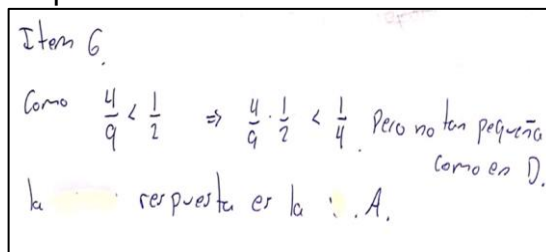 Item 6.
Como 4/9 < 1/2 ⇒ 4/9 · 1/2 < 1/4. Pero no tan pequeña
como en D.
la respuesta es la : A.